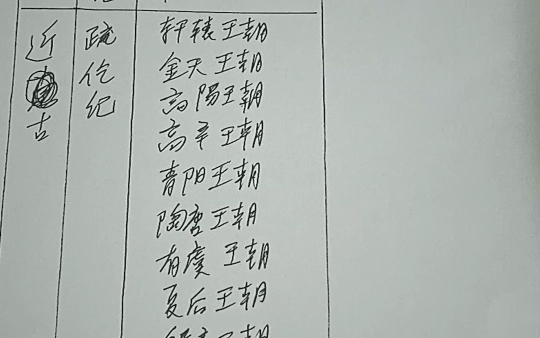 近古
疏仡纪
轩辕王朝
金天王朝
高陽王朝
高辛王朝
青阳王朝
陶唐王朝
有虞王朝
夏后王朝